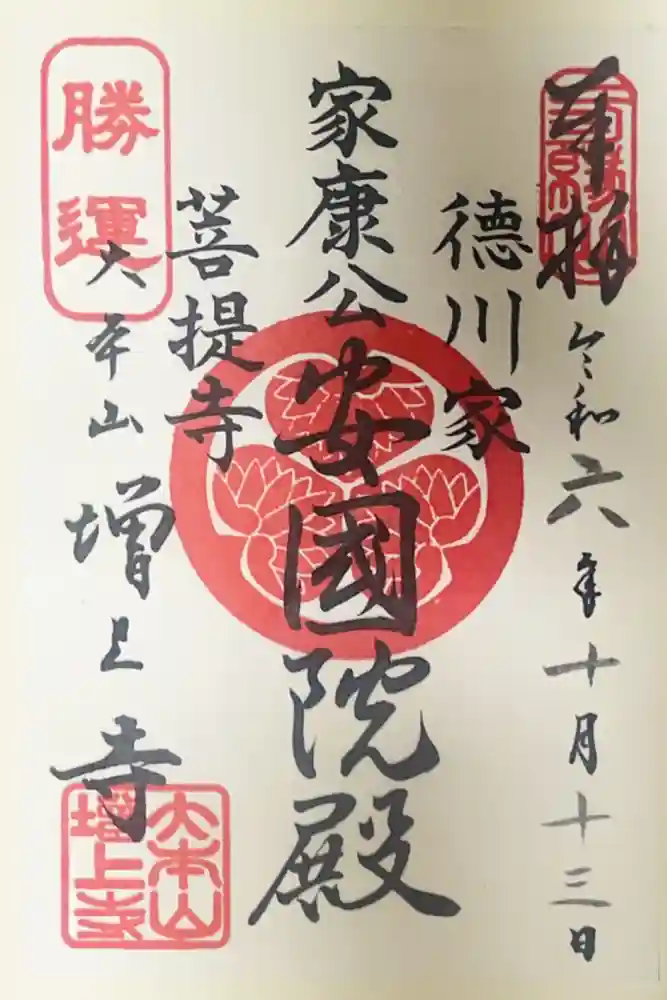 奉拝
令和六年十月十三日
徳川家
家康公安國院殿
菩提寺
勝運
大本山増上寺
大本山
増上寺